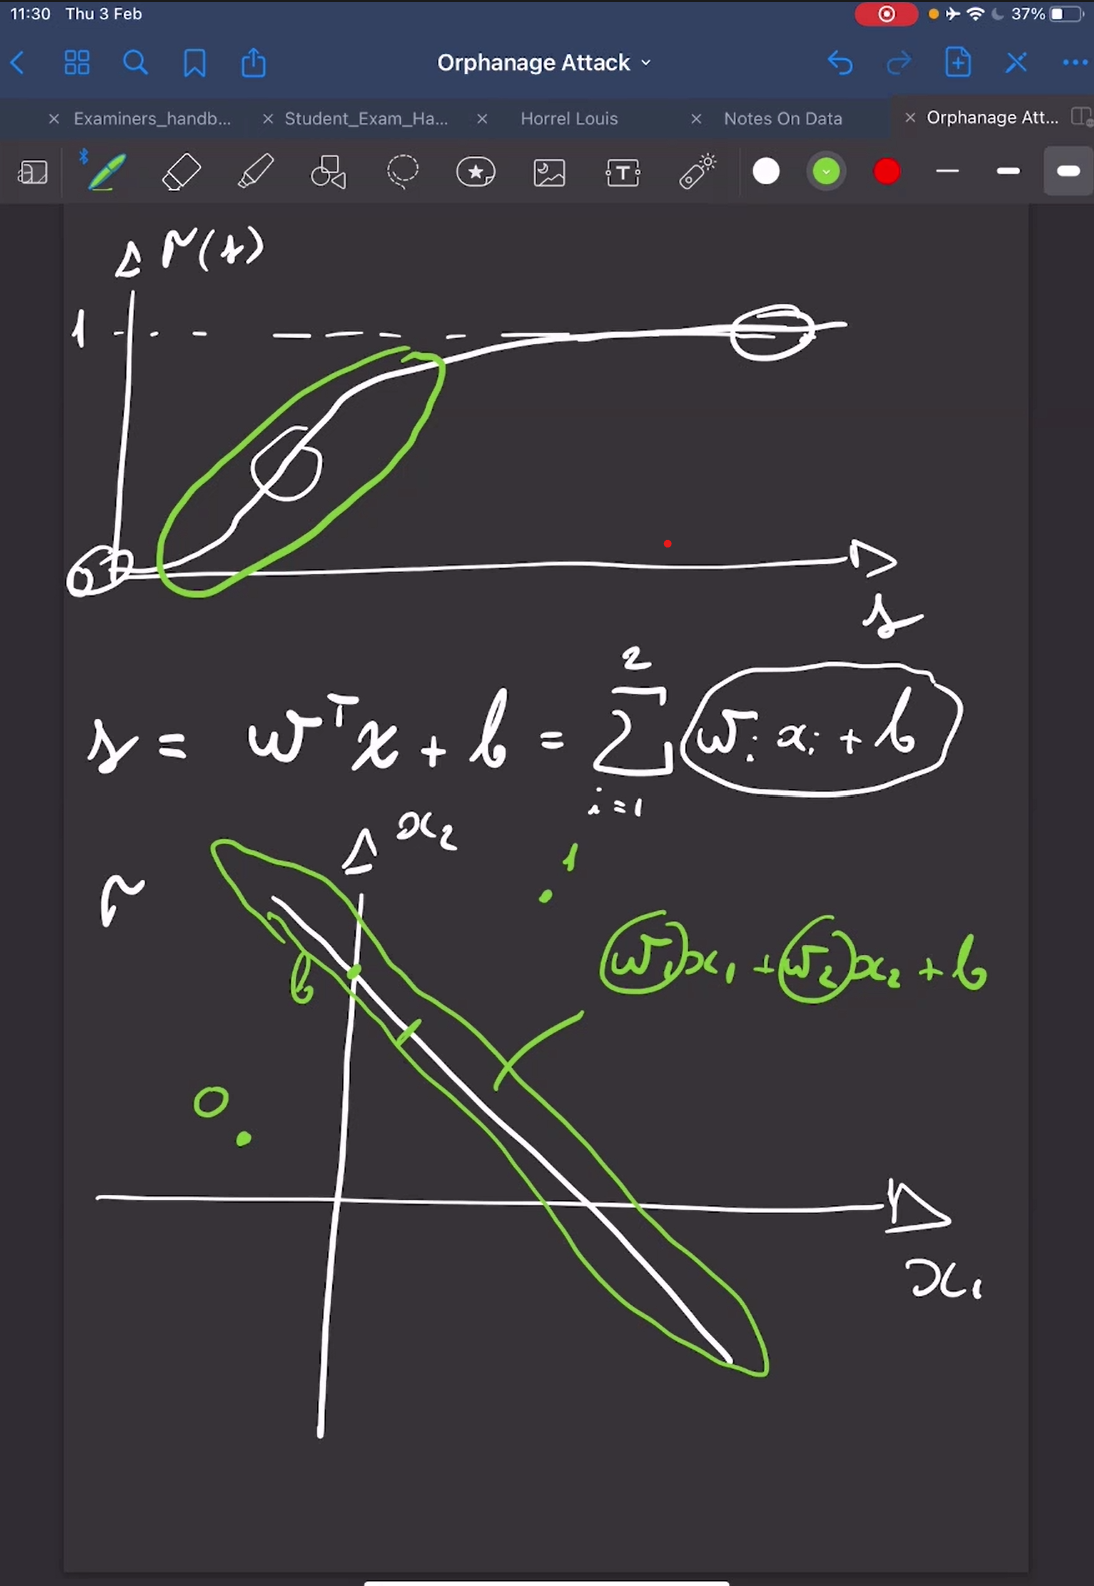 11:30 Thu 3 Feb 37%
Orphanage Attack
Examiners_handb... Student_Exam_Ha... Horrel Louis Notes On Data Orphanage Att...
r(t)
1
0
s
s = w^T x + b = \sum_{i=1}^{2} w_i x_i + b
x_2
r
1
w_1 x_1 + w_2 x_2 + b
b
0
x_1